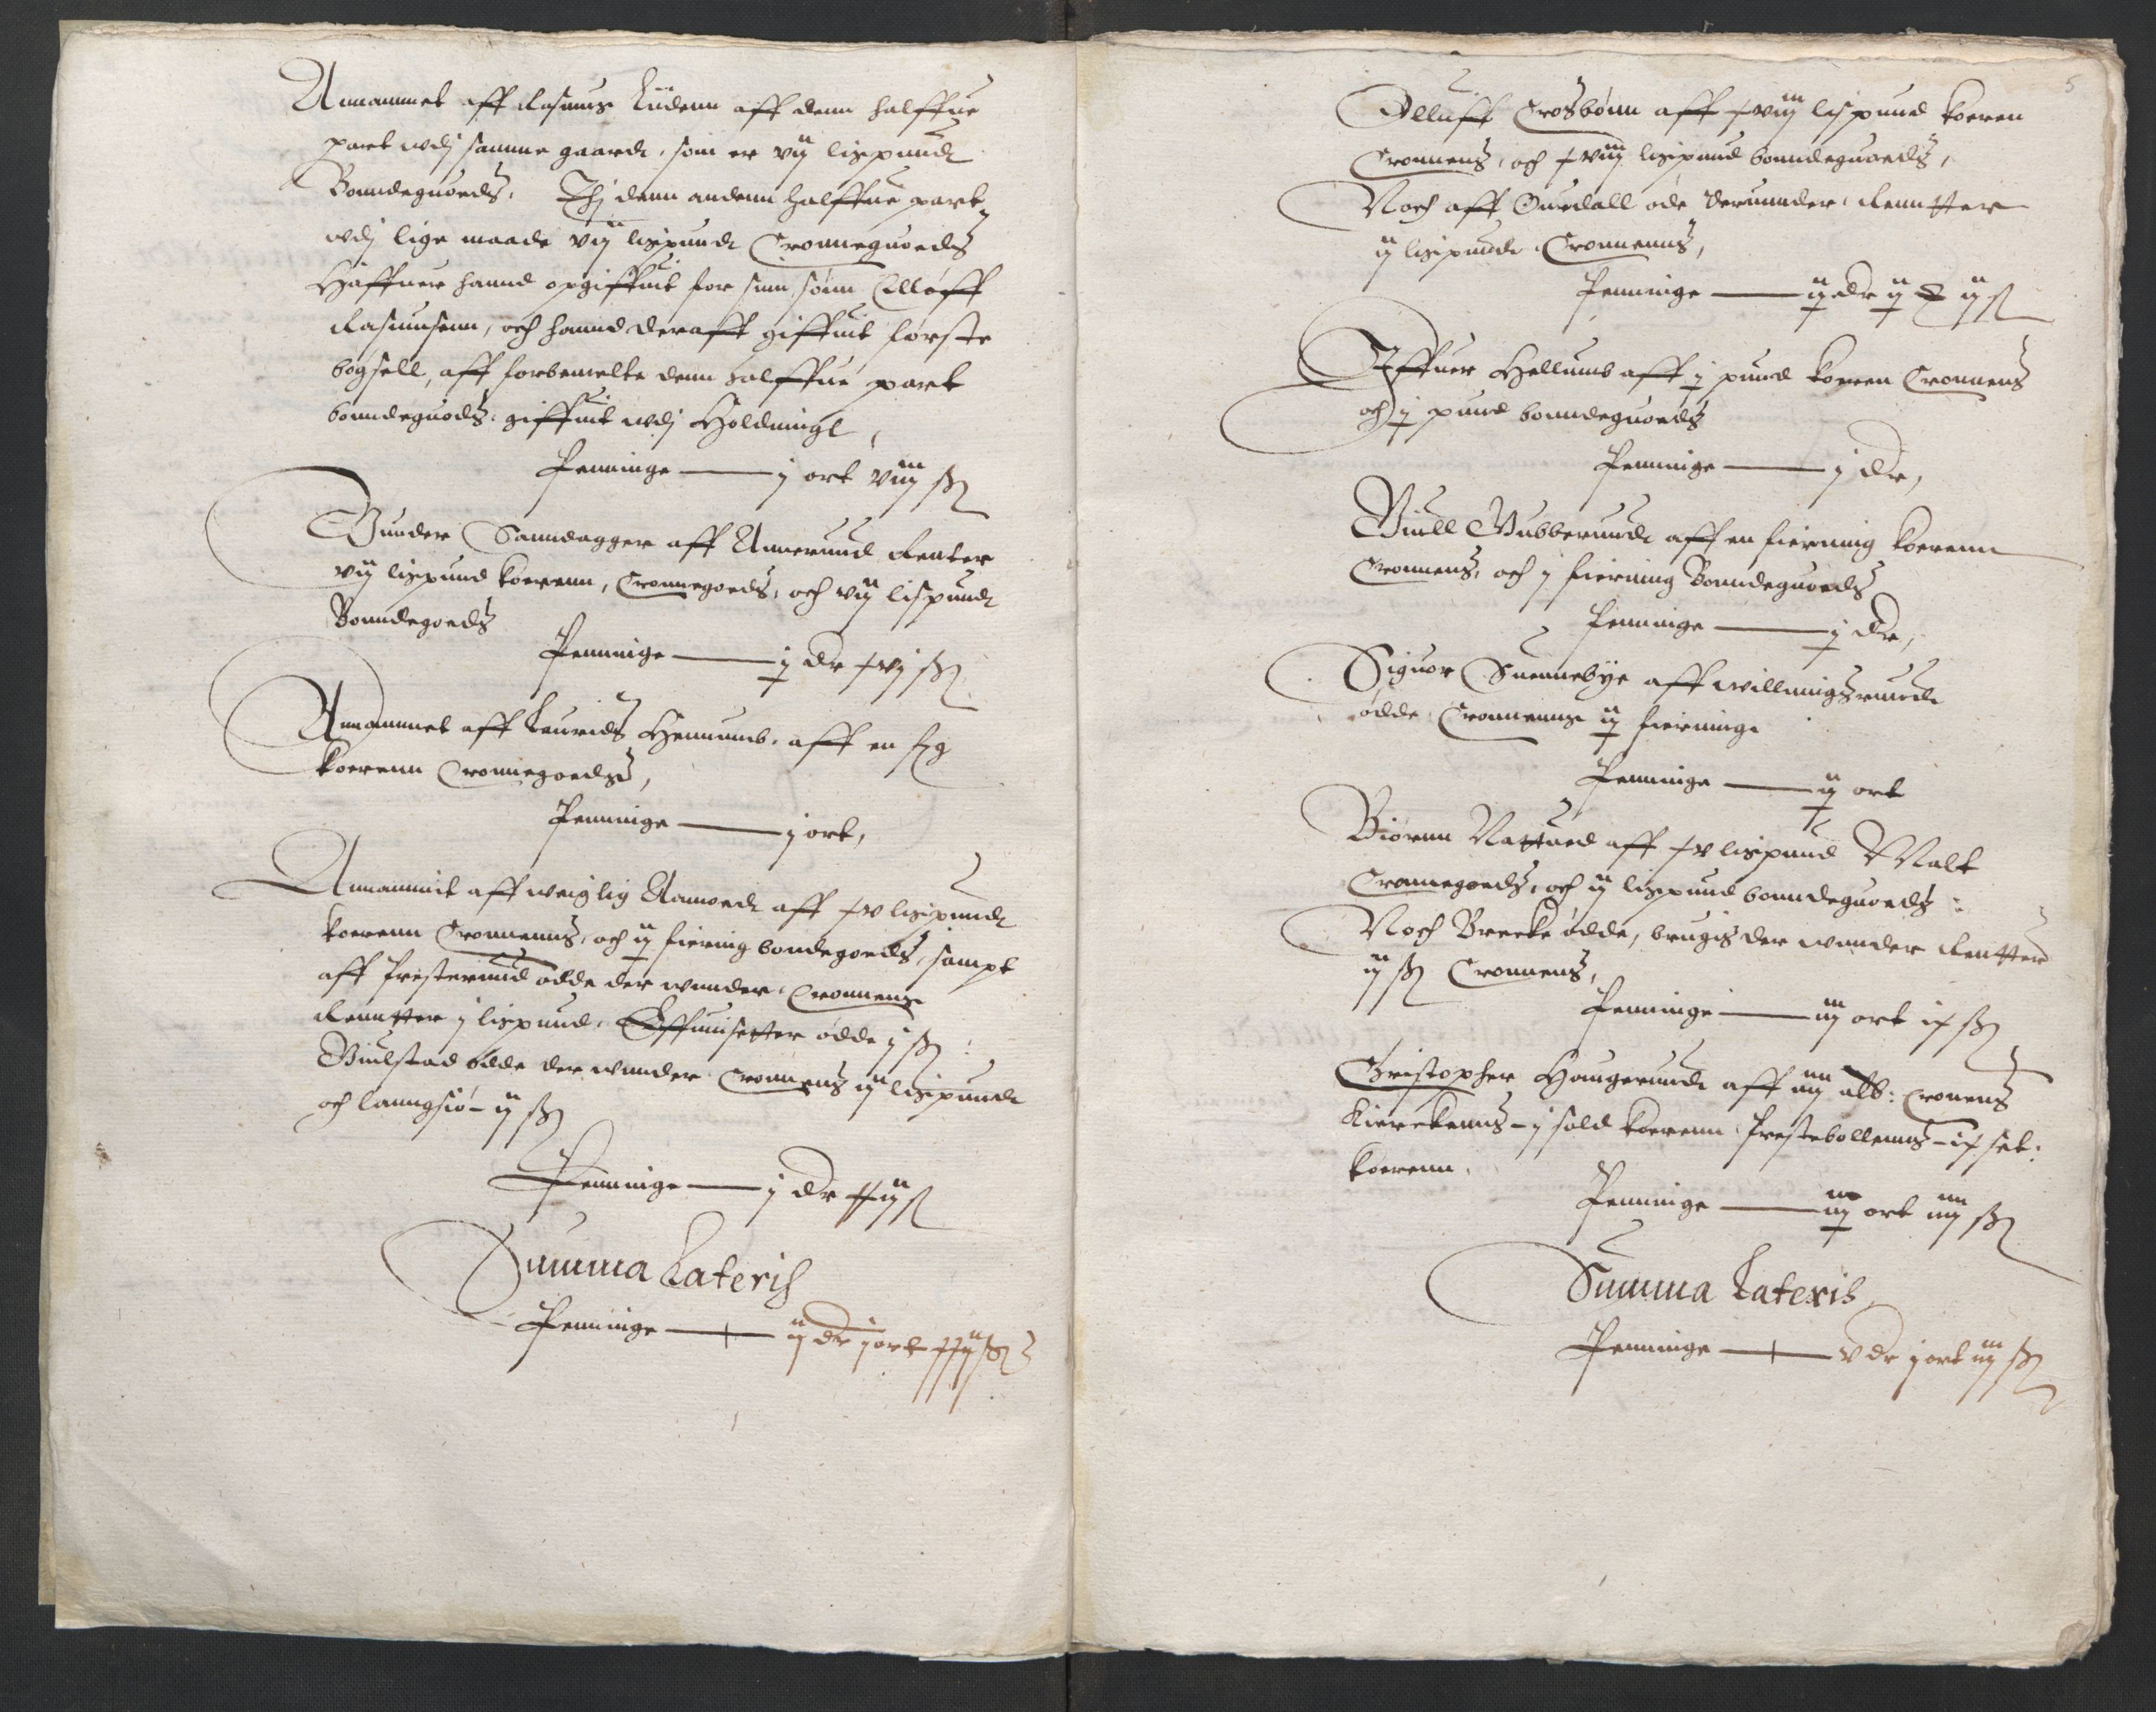 Annammet aff Rasmus Lüdenn aff denn halffue
part udj samme gaardt, som er vij lispundt
Bonndeguoeds, Thj denn andenn halffue part
udj lige maade vij lispundt Cronneguoeds
Haffuer hannd opgiffuit for sinn sønn Elloff
Rasmusenn, och hannd deraff giffuit første
bøgsell, aff forbemelte denn halffue part
bonndeguods, giffuit udj Holdningh,
Penninge — j ort viij ß
Gunder Sanndagger aff Annerund Renter
vij lispund koerenn, Cronnegoeds, och vij lispundt
Bonndegoeds
Penninge — j dr xvj ß
Annammet aff Laurids Hennumb, aff en sk
koerenn Cronnegoeds,
Penninge — j ort,
Annammit aff weiglig Aamodt aff xv lispundt
koerenn Cronnenns, och ij fiering bondegoeds, sampt
aff Presterund ødde der wunder, Cronnens
Renntter j lispund, Effuinsetter ødde j ß
Biulstad ødde der wunder Cronnens ij lispundt
och lanngsiø – ij ß
Penninge — j dr xxij ß
Summa Lateris
Penninge — ij dr j ort xxij ß
5
Olluff Crosbønn aff xviij lispund koeren
Cronnens, och xviij lispund bonndeguoeds,
Noch aff Øuedall øde derunnder Renntter
ij lispundt Cronnenns,
Penninge — ij dr ij ij ß
Iffuer Hellumb aff j pund koeren Cronnens
och j pund bonndeguoeds
Penninge — j dr,
Biull Gubberundt aff en fierning koerenn
Cronnens, och j fierning Bonndeguoeds
Penninge — j dr,
Siguor Suennebye aff willingsrundt
ødde Cronnenns ij fierninge
Penninge — ij ort
Biørnn Nattued aff xv lispund Malt
Cronnegoeds, och ij lispund bonndeguoeds
Noch Brecke ødde, brugis der wunder Renntter
ij ß Cronnens,
Penninge — iij ort ix ß
Christopher Haugerundt aff iiij alb: Cronens
Kierckenns – j sold koerenn Prestebollenns – ix set:
koerenn,
Penninge — iij ort iiij ß
Summa Lateris
Penninge — v dr j ort iij ß